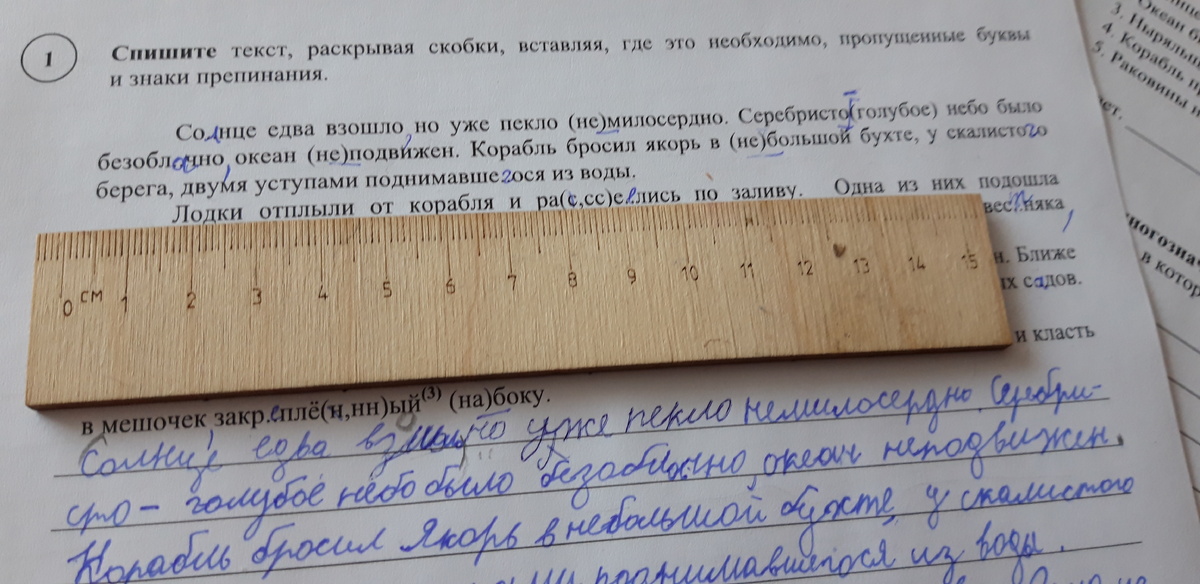 1
Спишите текст, раскрывая скобки, вставляя, где это необходимо, пропущенные буквы
и знаки препинания.
Солнце едва взошло, но уже пекло (не)милосердно. Серебристо(голубое) небо было
безоблачно, океан (не)подвижен. Корабль бросил якорь в (не)большой бухте, у скалистого
берега, двумя уступами поднимавшегося из воды.
Лодки отплыли от корабля и ра(с,сс)еялись по заливу. Одна из них подошла
няка
Ближе
садов.
и класть
в мешочек закр.еплё(н,нн)ый(3) (на)боку.
0 см 1 2 3 4 5 6 7 8 9 10 11 12 13 14 15
Солнце едва но уже пекло немилосердно. Серебри-
сто-голубое небо было океан неподвижен.
Корабль бросил якорь в небольшой бухте, у скалистого
поднимавшегося из воды.
3. Ныряльщ
4. Корабль п
5. Раковины
в котор